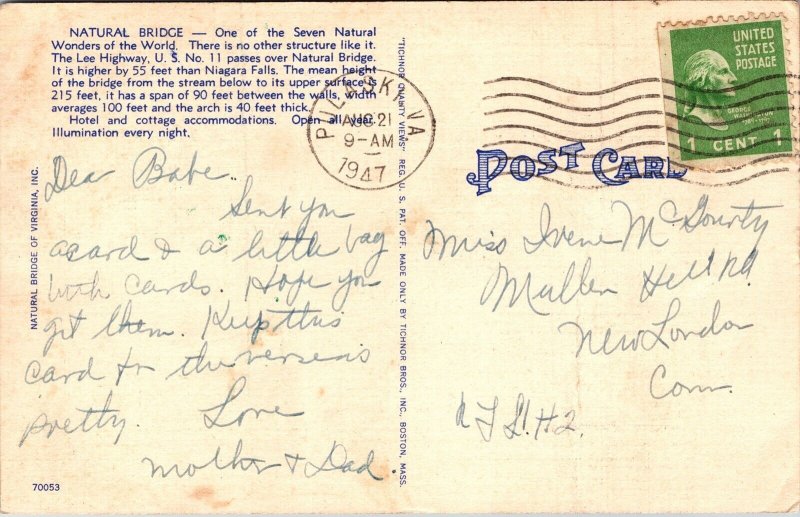 NATURAL BRIDGE — One of the Seven Natural
Wonders of the World. There is no other structure like it.
The Lee Highway, U. S. No. 11 passes over Natural Bridge.
It is higher by 55 feet than Niagara Falls. The mean height
of the bridge from the stream below to its upper surface is
215 feet, it has a span of 90 feet between the walls, width
averages 100 feet and the arch is 40 feet thick.
Hotel and cottage accommodations. Open all year.
Illumination every night.
PULASKI, VA
AUG 21
9-AM
1947
UNITED
STATES
POSTAGE
GEORGE
WASHINGTON
1 CENT 1
POST CARD
Dear Babe.
Sent you
a card & a little bag
with cards. Hope you
get them. Keep this
card for the verse is
pretty. Love
Mother & Dad
Miss Irene McGourty
Mullen Hill Rd
New London
Conn.
H2.
NATURAL BRIDGE OF VIRGINIA, INC.
"TICHNOR QUALITY VIEWS" REG. U. S. PAT. OFF. MADE ONLY BY TICHNOR BROS., INC., BOSTON, MASS.
70053